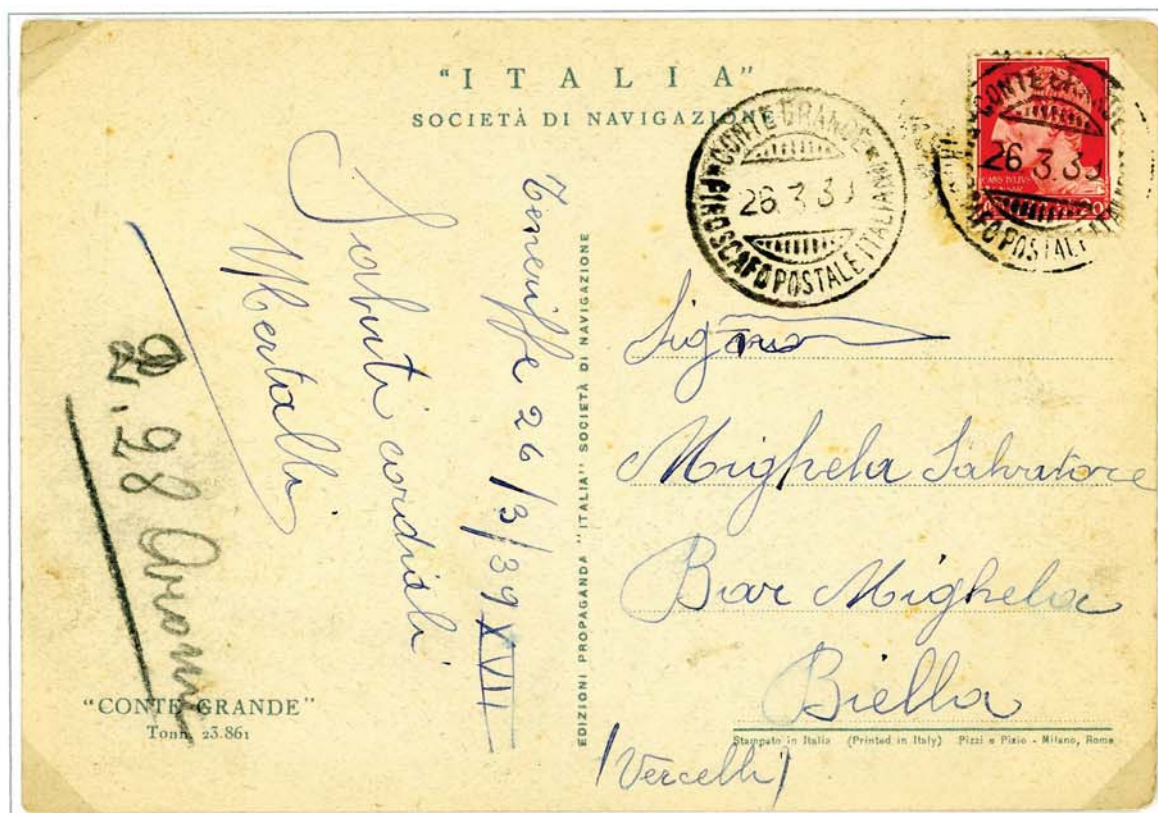 "ITALIA"
SOCIETÀ DI NAVIGAZIONE
CONTE GRANDE
PIROSCAFO POSTALE ITALIANO
26.3.39
CONTE GRANDE
26.3.39
Teneriffe 26/3/39 XVII
Saluti cordiali
2.98
EDIZIONI PROPAGANDA "ITALIA" SOCIETÀ DI NAVIGAZIONE
Mighela Salvatore
Bar Mighela
Biella
(Vercelli)
"CONTE GRANDE"
Tonn. 23.861
Stampato in Italia (Printed in Italy) Pizzi e Pizio - Milano, Roma